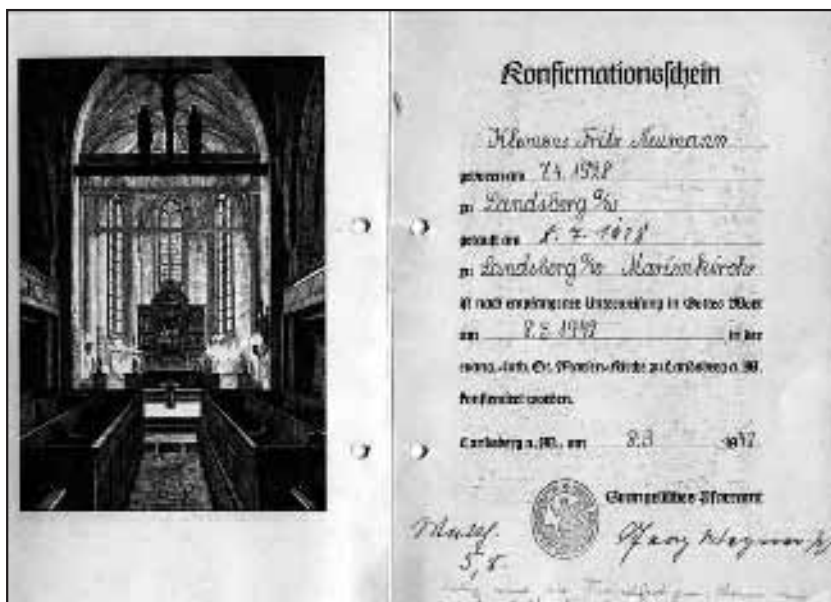 Konfirmationsschein
Klemens Fritz Neumann
geboren am 7.4. 1928
zu Landsberg a/W
getauft am 8. 7. 1928
zu Landsberg a/W Marienkirche
ist nach empfangener Unterweisung in Gottes Wort
am 8.3.1942 in der
evang.-luth. St. Marien-Kirche zu Landsberg a. W.
konfirmiert worden.
Landsberg a. W., am 8.3 1942
Evangelisches Pfarramt
Georg Wegner